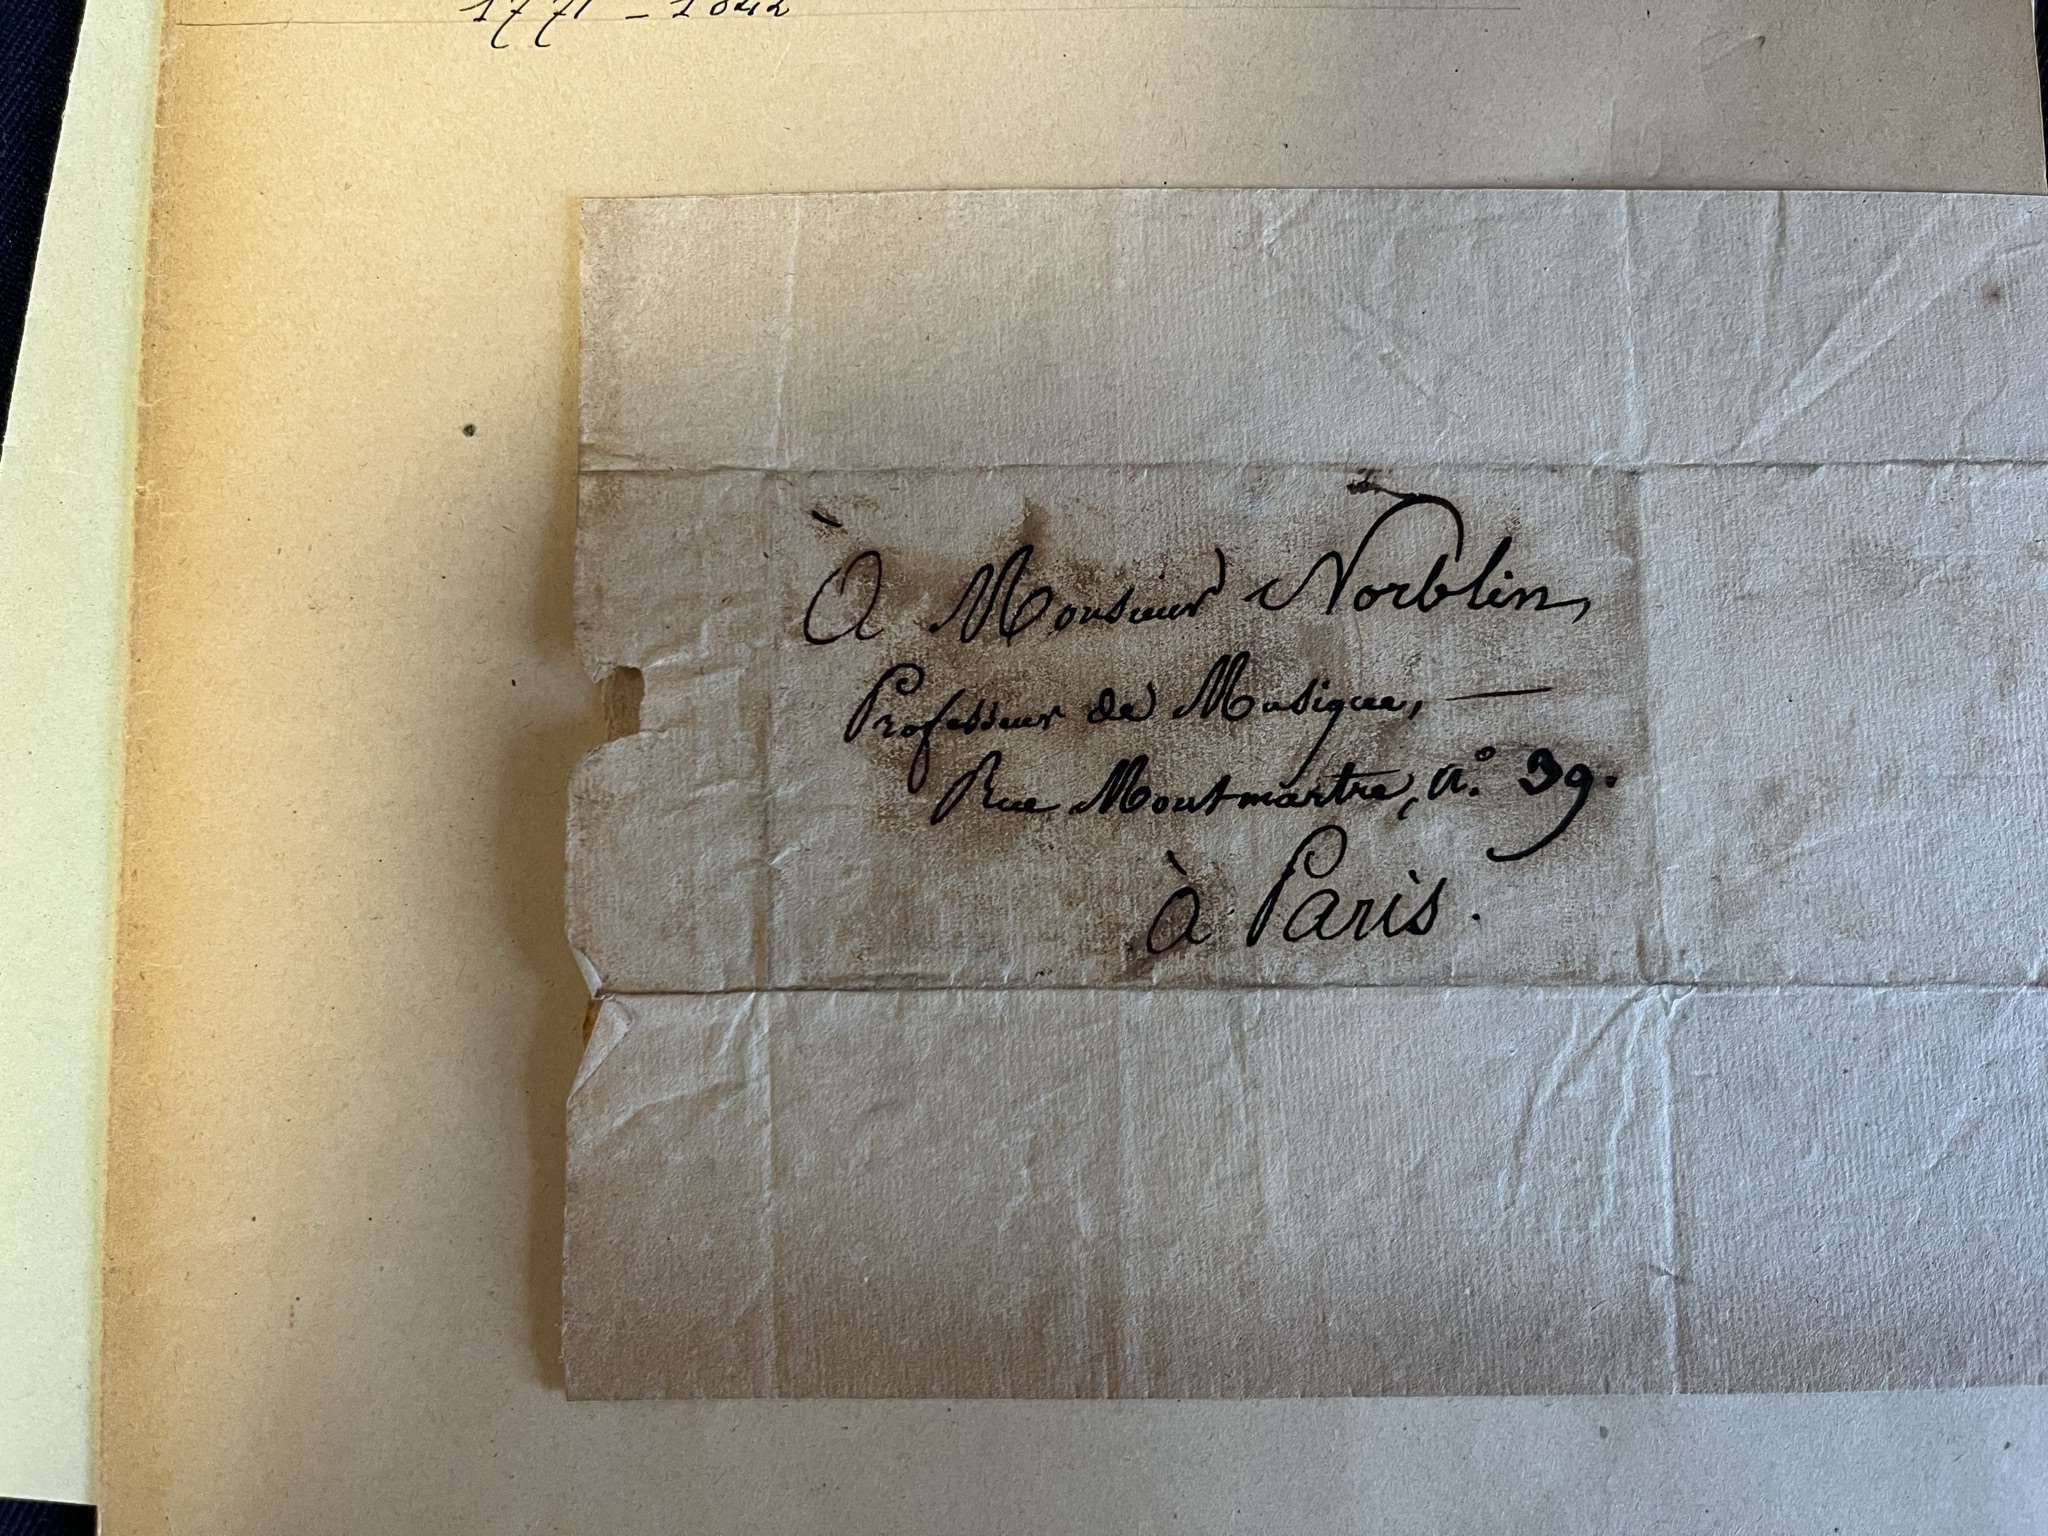 1771 - 1842
À Monsieur Norblin,
Professeur de Musique, —
Rue Montmartre, n.º 39.
à Paris.